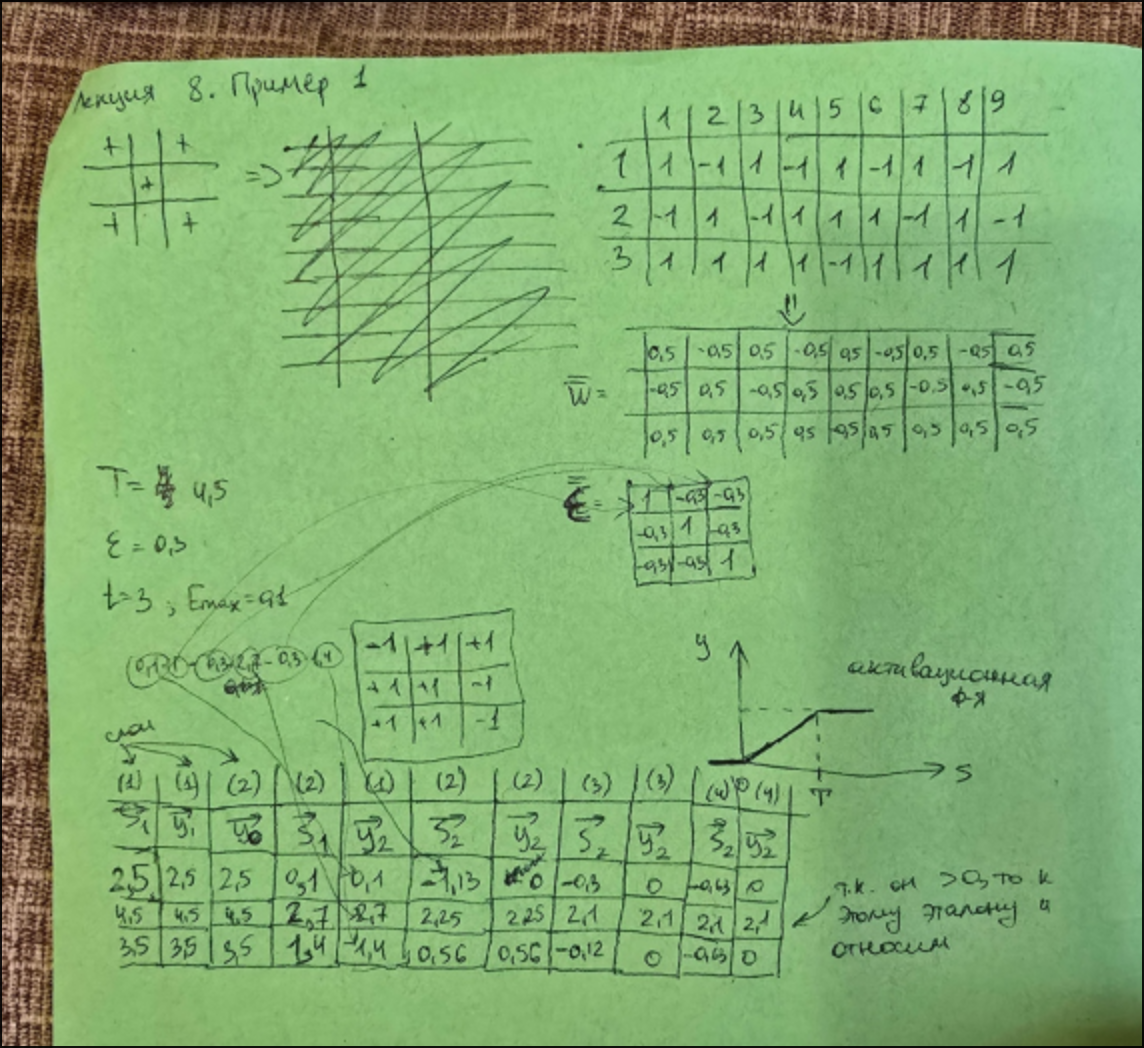 Лекция 8. Пример 1
+ | | +
| + |
+ | | +
=>
1 2 3 4 5 6 7 8 9
1 1 -1 1 -1 1 -1 1 -1 1
2 -1 1 -1 1 1 1 -1 1 -1
3 1 1 1 1 -1 1 1 1 1
W =
0,5 -0,5 0,5 -0,5 0,5 -0,5 0,5 -0,5 0,5
-0,5 0,5 -0,5 0,5 0,5 0,5 -0,5 0,5 -0,5
0,5 0,5 0,5 0,5 -0,5 0,5 0,5 0,5 0,5
T = 4,5
ε = 0,3
t=3 ; Emax=0,1
ε =
1 -0,3 -0,3
-0,3 1 -0,3
-0,3 -0,3 1
0,1·1 - 0,3·2,7 - 0,3·1,4
-1 +1 +1
+1 +1 -1
+1 +1 -1
y
активационная
ф-я
0 T S
слои
(1) (1) (2) (2) (1) (2) (2) (3) (3) (4) (4)
S1 y1 y0 S1 y2 S2 y2 S2 y2 S2 y2
2,5 2,5 2,5 0,1 0,1 -1,13 0 -0,3 0 -0,63 0
4,5 4,5 4,5 2,7 2,7 2,25 2,25 2,1 2,1 2,1 2,1
3,5 3,5 3,5 1,4 1,4 0,56 0,56 -0,12 0 -0,63 0
т.к. он >0, то к
этому эталону и
относим